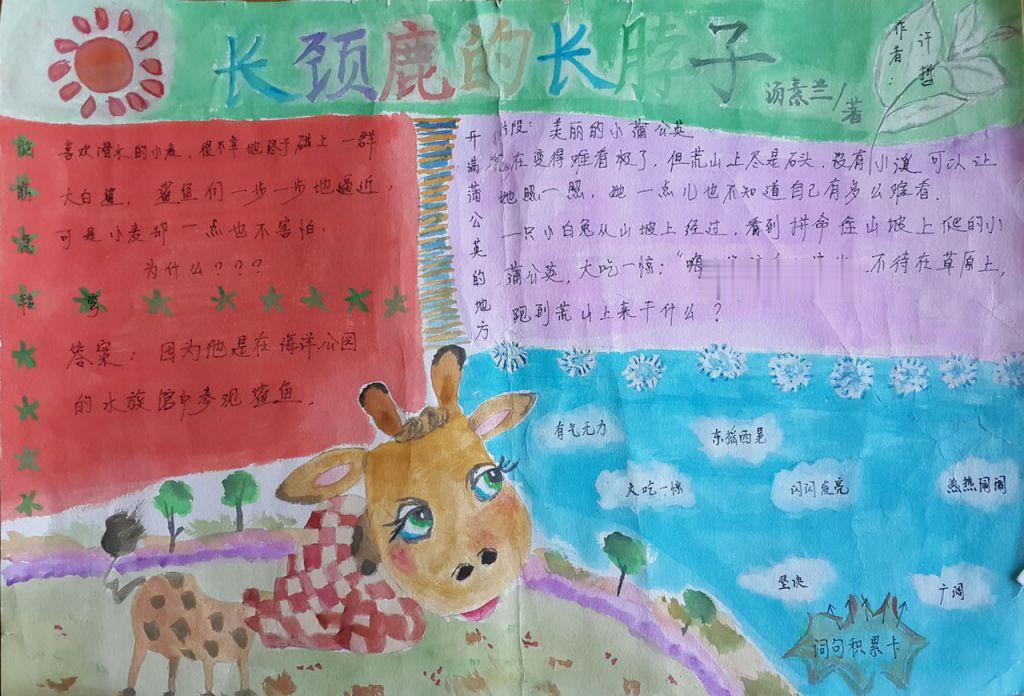 长颈鹿的长脖子
汤素兰/著
作者：许哲
脑筋急转弯
喜欢潜水的小麦，很不幸地终于碰上一群
大白鲨，鲨鱼们一步一步地逼近，
可是小麦却一点也不害怕，
为什么？？？
答案：因为他是在海洋公园
的水族馆中参观鲨鱼。
开满蒲公英的地方
片段：美丽的小蒲公英
现在变得难看极了，但荒山上尽是石头，没有小溪可以让
她照一照，她一点儿也不知道自己有多么难看.
一只小白兔从山坡上经过，看到拼命往山坡上爬的小
蒲公英，大吃一惊：“嗨 不待在草原上，
跑到荒山上来干什么？
有气无力
东摇西晃
大吃一惊
闪闪发亮
热热闹闹
坚决
广阔
词句积累卡